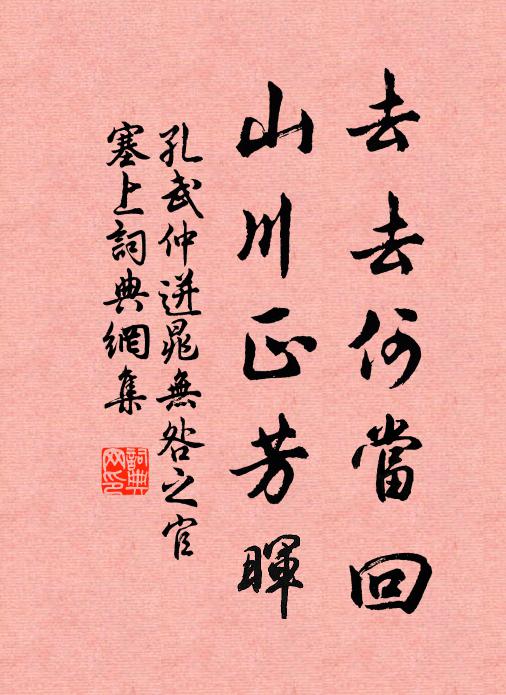 去去何當回
山川正芳暉
孔武仲送晁無咎之官
塞上詞典網集
詞典网印